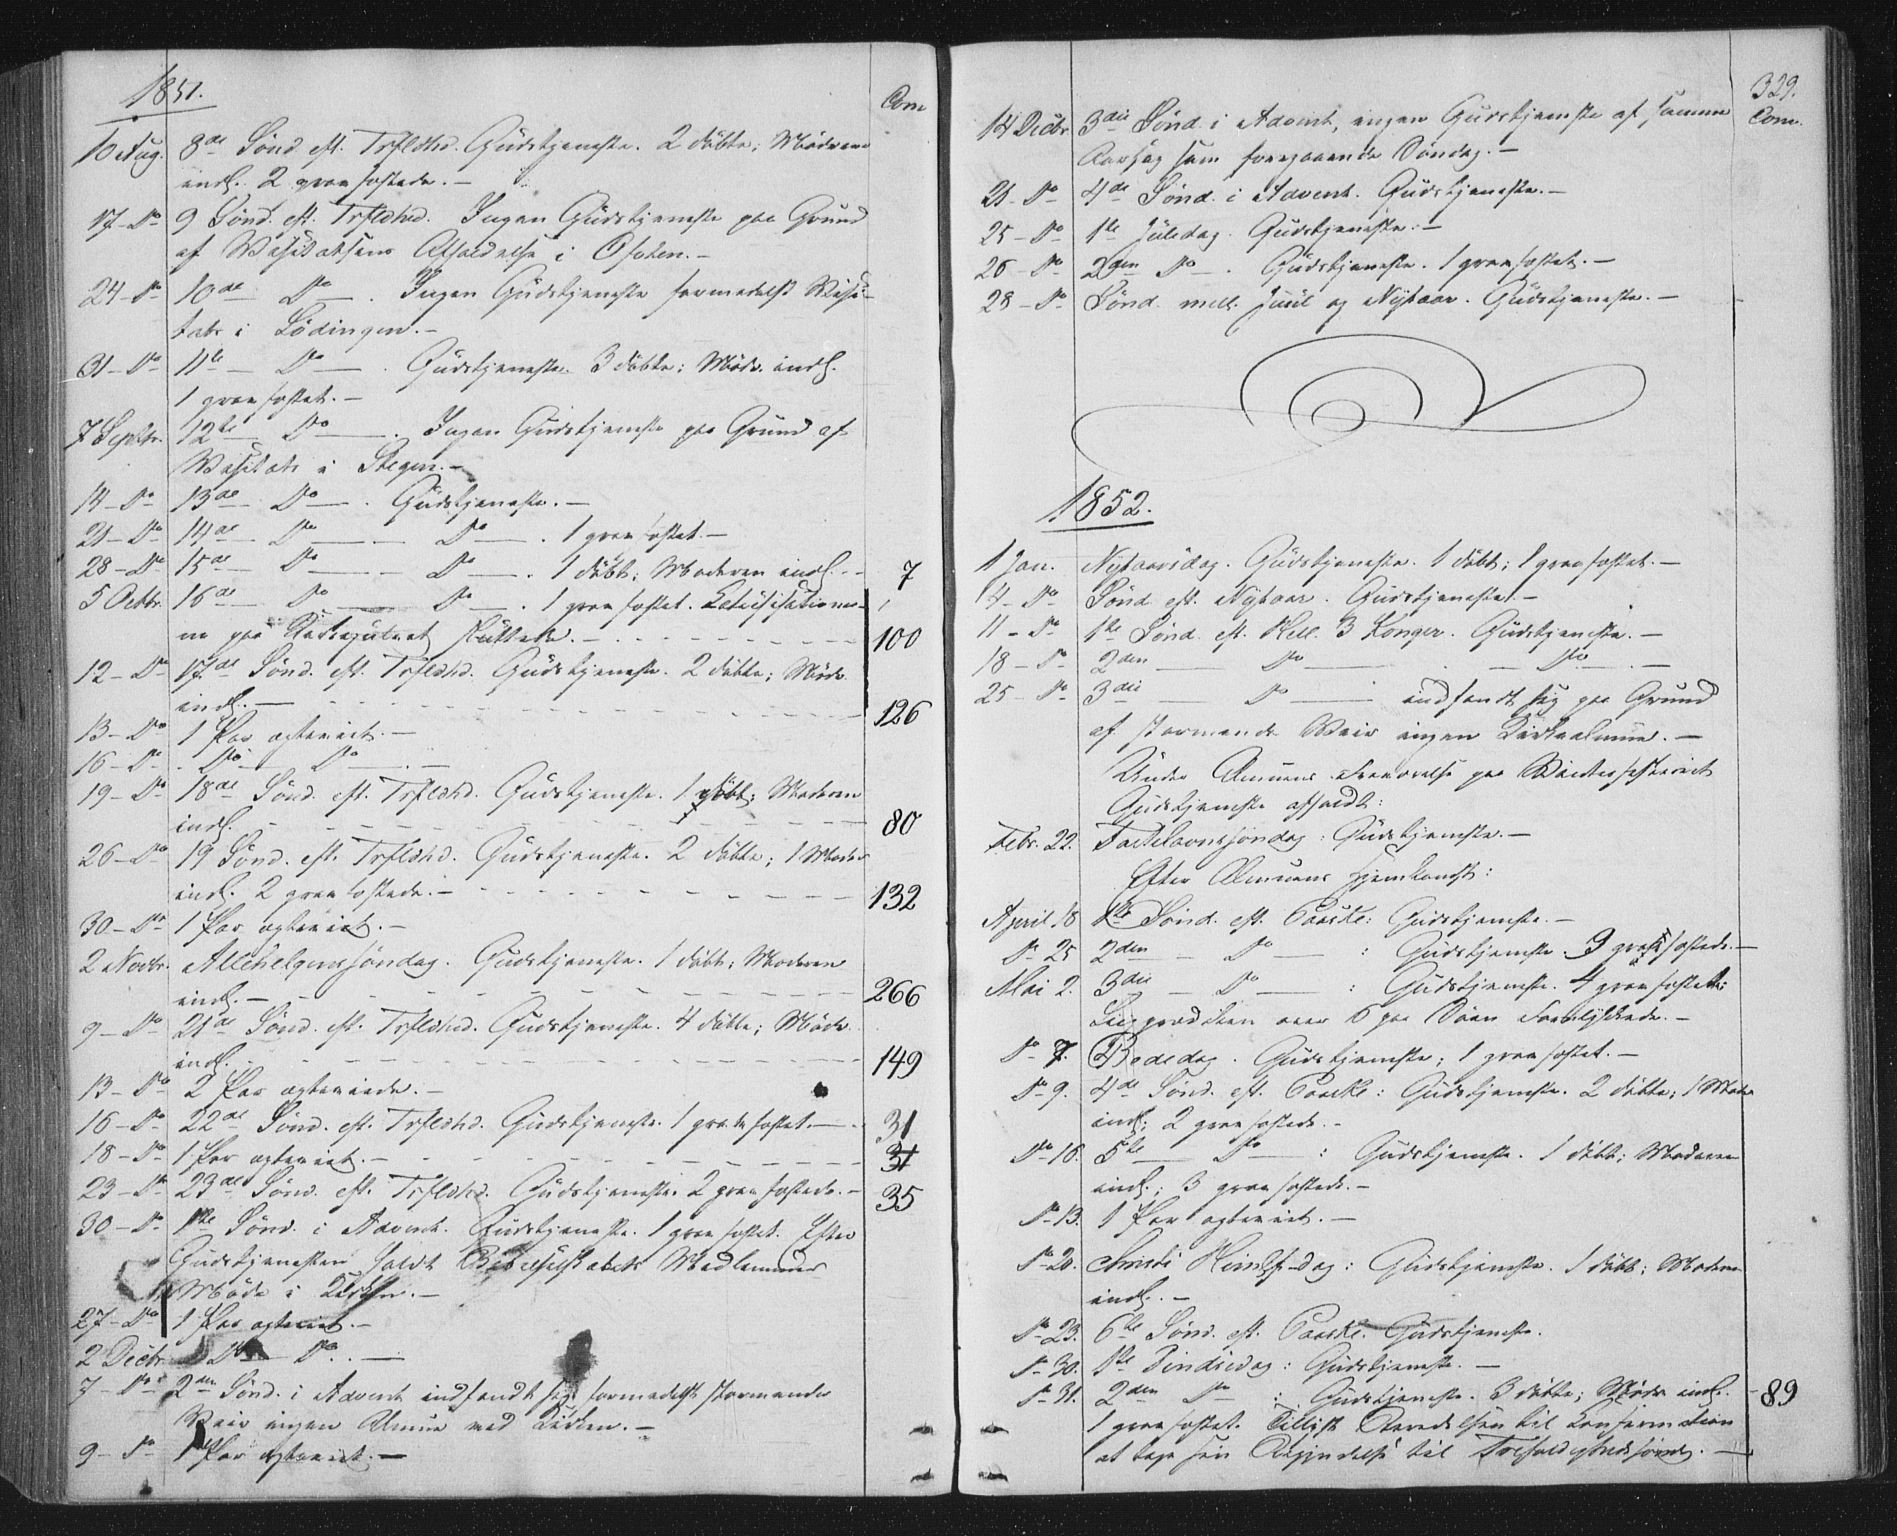 1851.
Com
10 Aug. 8de Sønd. eft. Trfldhd. Gudstjeneste. 2 döbte; Mødrene
indl. 2 graafæstede. —
17- Do 9 Sønd. eft. Trfldhd. Ingen Gudstjeneste paa Grund
af Visitatsens Afholdelse i Ofoten. —
24- Do 10de Do . Ingen Gudstjeneste formedelst Visi-
tats i Lödingen. —
31- Do 11te — Do — . Gudstjeneste. 3 döbte; Mødr. indl.
1 graafæstet. —
7 Septbr. 12te Do — . Ingen Gudstjeneste paa Grund af
Visitats i Stegen. —
14- Do 13de Do — . Gudstjeneste. —
21- Do 14de Do — Do — . 1 graafæstet. —
28- Do 15de Do — Do — . 1 döbt; Moderen indl. - - 7
5 Octbr. 16de Do — Do — . 1 graafæstet.
100
12- Do 17de Sønd. eft. Trfldhd. Gudstjeneste. 2 döbte; Mødr.
indl. — 126
13- Do 1 Par ægteviet. —
16- Do . Do Do — . —
19- Do 18de Sønd. eft. Trfldhd. Gudstjeneste. 1 döbt; Moderen
indl. 80
26- Do 19 Sønd. eft. Trfldhd. Gudstjeneste. 2 döbte; 1 Moder
indl. 2 graafæstede. — 132
30- Do 1 Par ægteviet. —
2 Novbr. Allehelgenssøndag. Gudstjeneste. 1 döbt; Moderen
indl. — 266
9- Do 21de Sønd. eft. Trfldhd. Gudstjeneste. 4 döbte; Mødr.
indl. 149
13- Do 2 Par ægteviede. —
16- Do 22de Sønd. eft. Trfldhd. Gudstjeneste. 1 graafæstet. — 31
18- Do 1 Par ægteviet. — 31
23- Do 23de Sønd. eft. Trfldhd. Gudstjeneste. 2 graafæstede. — 35
30- Do 1ste Sønd. i Advent. Gudstjeneste. 1 graafæstet. Efter
Gudstjenesten holdt Bibelselskabets Medlemmer
Møde i Kirken. —
27- Do 1 Par ægteviet. —
2 Decbr. Do Do . —
7- Do 2den Sønd. i Advent indfandt sig formedelst stormende
Veir ingen Almue ved Kirken. —
9- Do 1 Par ægteviet. —
329.
Com.
14 Decbr. 3die Sønd. i Advent, ingen Gudstjeneste af samme
Aarsag som foregaaende Søndag. —
21- Do 4de Sønd. i Advent. Gudstjeneste. —
25- Do 1ste Juledag. Gudstjeneste. —
26- Do 2den Do — . Gudstjeneste. 1 graafæstet. —
28- Do Sønd. mell. Juul og Nytaar. Gudstjeneste. —
1852.
1 Jan. Nytaarsdag. Gudstjeneste. 1 döbt; 1 graafæstet. —
4- Do Sønd. eft. Nytaar. Gudstjeneste. —
11- Do 1ste Sønd. eft. Hell. 3 Konger. Gudstjeneste. —
18- Do 2den — Do — . — Do — . —
25- Do 3die — Do — indfandt sig paa Grund
af stormende Veir ingen Kirkealmue. —
Under Almuens Fraværelse paa Vinterfiskeriet
Gudstjeneste afholdt:
Febr. 22. Fastelavnssöndag: Gudstjeneste. —
Efter Almuens Hjemkomst:
April 18 1ste Sønd. eft. Paaske: Gudstjeneste. —
Do 25 2den — Do — : Gudstjeneste. 9 graafæstede. —
Mai 2. 3die — Do — : Gudstjeneste. 4 graafæstede;
Liigprædiken over 6 paa Søen Forulykkede. —
Do 7. Bededag. Gudstjeneste; 1 graafæstet. —
Do 9. 4de Sønd. eft. Paaske: Gudstjeneste. 2 döbte; 1 Moder
indl.; 2 graafæstede. —
Do 16. 5te — Do — : Gudstjeneste. 1 döbt; Moderen
indl.; 3 graafæstede. —
Do 13. 1 Par ægteviet. —
Do 20. Christi Himlf.-dag: Gudstjeneste. 1 döbt; Moderen
indl. —
Do 23. 6te Sønd. eft. Paaske. Gudstjeneste.
Do 30. 1ste Pindsedag: Gudstjeneste. —
Do 31. 2den Do : Gudstjeneste. 3 döbte; Mødr. indl. - 89
1 graafæstet. Tillyst til Confirmation
at tage sin Begyndelse til Trefoldighedssönd. —